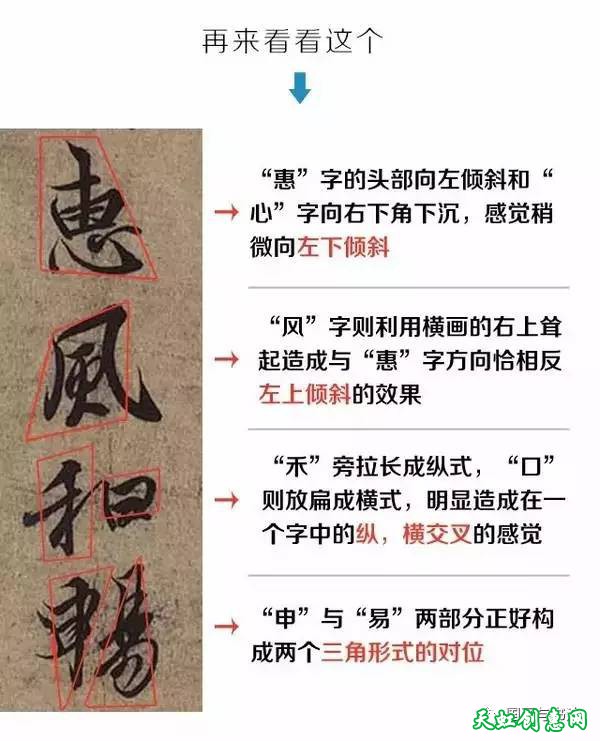 再来看看这个
惠
风
和
畅
“惠”字的头部向左倾斜和“
心”字向右下角下沉，感觉稍
微向左下倾斜
“风”字则利用横画的右上耸
起造成与“惠”字方向恰相反
左上倾斜的效果
“禾”旁拉长成纵式，“口”
则放扁成横式，明显造成在一
个字中的纵，横交叉的感觉
“申”与“易”两部分正好构
成两个三角形式的对位
天虹创意网